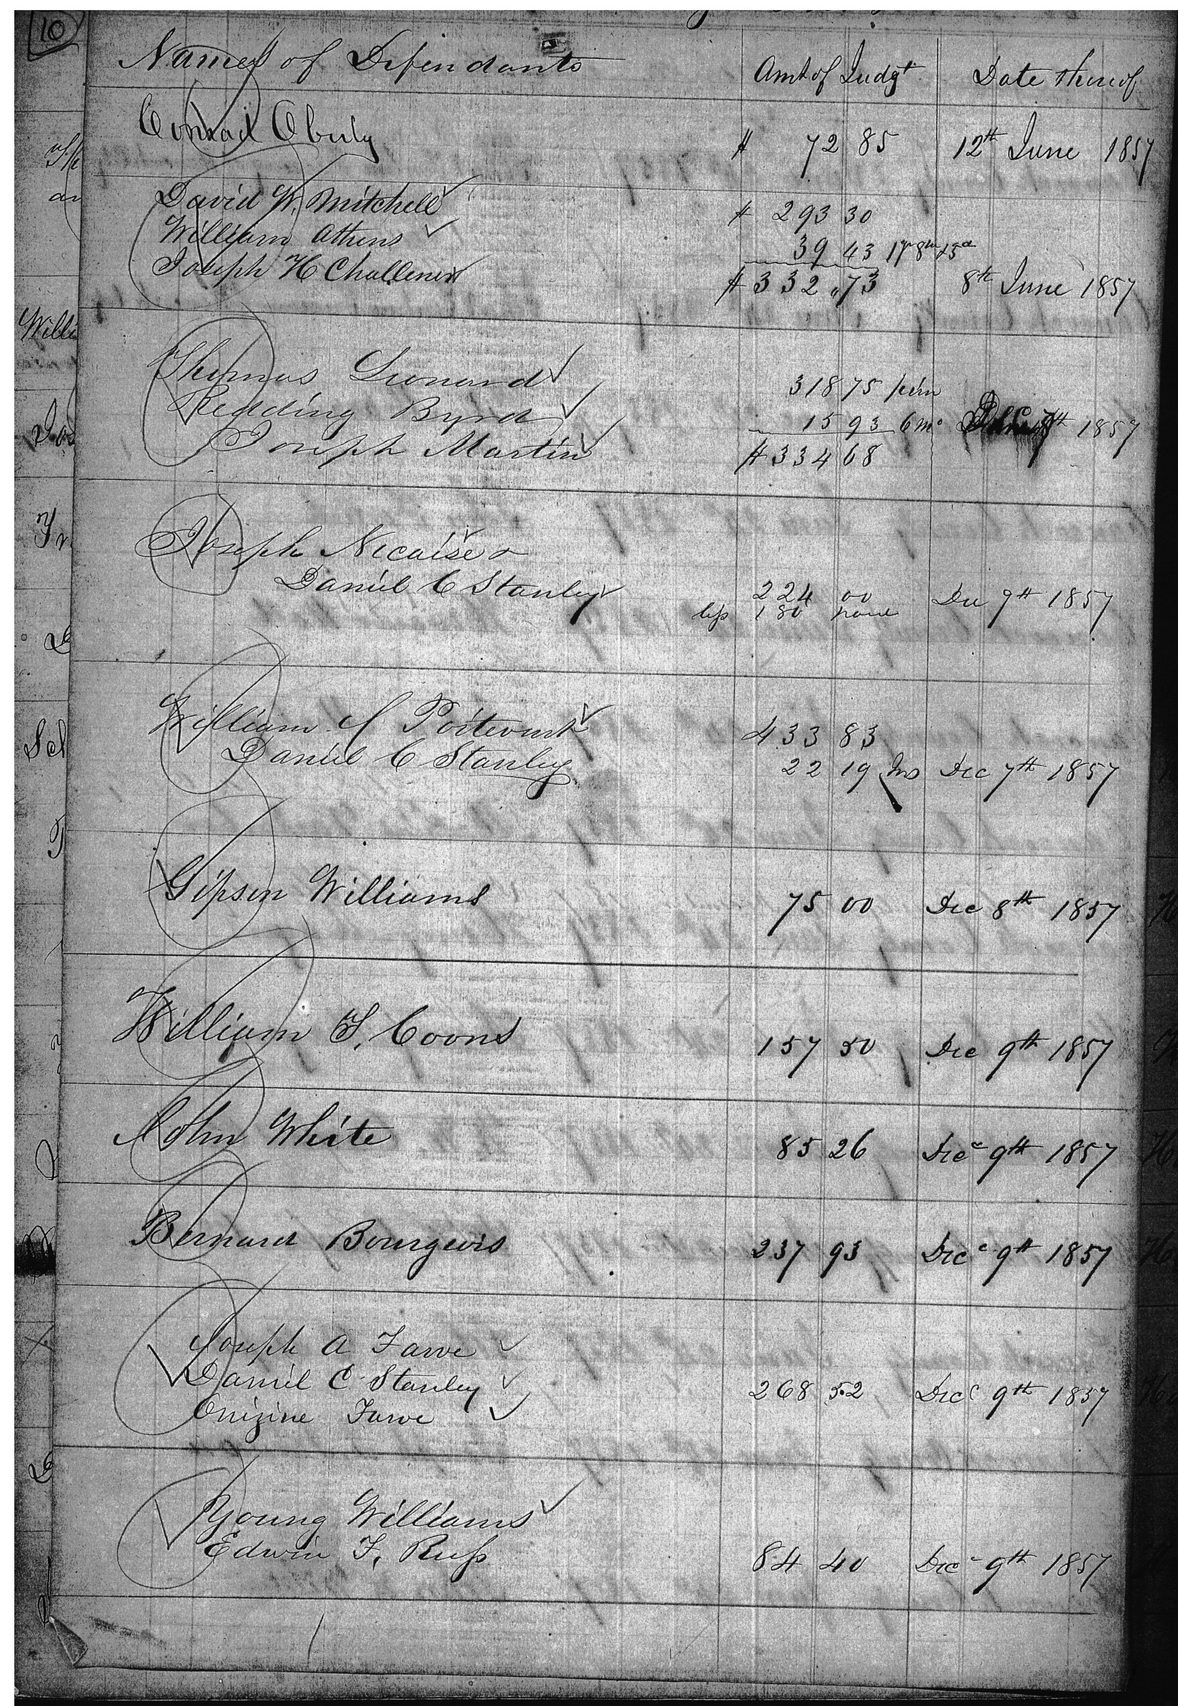 10
Names of Defendants Amt of Judgt Date thereof
Conrad Oberly $ 72 85 12th June 1857
David W. Mitchell $ 293 30
William Athens 39 43
Joseph H Challener $ 332 73 8th June 1857
Thomas Leonard 318 75 prin
Redding Byrd 15 93 6 mo 7th 1857
Joseph Martin $ 334 68
Joseph Nicaise &
Daniel C Stanley 224 00 Dec 7th 1857
180
William J Poitevent 433 83
Daniel C Stanley 22 19 Ins Dec 7th 1857
Gipson Williams 75 00 Dec 8th 1857
William T. Coons 157 50 Dec 9th 1857
John White 85 26 Dec 9th 1857
Bernard Bourgeois 237 93 Dec 9th 1857
Joseph A Favre
Daniel C Stanley 268 52 Dec 9th 1857
Onizine Favre
Young Williams
Edwin F. Russ 84 40 Dec 9th 1857